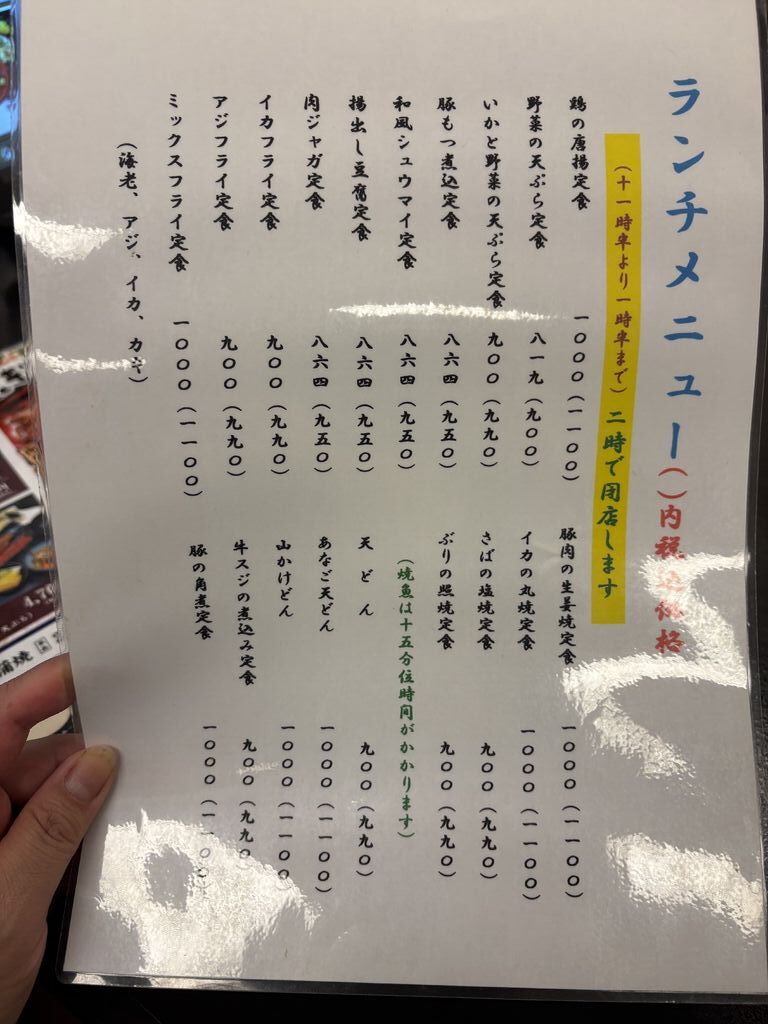 ランチメニュー()内税込価格
(十一時半より一時半まで)二時で閉店します
鶏の唐揚定食 一〇〇〇(一一〇〇)
野菜の天ぷら定食 八一九(九〇〇)
いかと野菜の天ぷら定食 九〇〇(九九〇)
豚もつ煮込定食 八六四(九五〇)
和風シュウマイ定食 八六四(九五〇)
揚出し豆腐定食 八六四(九五〇)
肉ジャガ定食 八六四(九五〇)
イカフライ定食 九〇〇(九九〇)
アジフライ定食 九〇〇(九九〇)
ミックスフライ定食 一〇〇〇(一一〇〇)
(海老、アジ、イカ、カキ)
豚肉の生姜焼定食 一〇〇〇(一一〇〇)
イカの丸焼定食 一〇〇〇(一一〇〇)
さばの塩焼定食 九〇〇(九九〇)
ぶりの照焼定食 九〇〇(九九〇)
(焼魚は十五分位時間がかかります)
天どん 九〇〇(九九〇)
あなご天どん 一〇〇〇(一一〇〇)
山かけどん 一〇〇〇(一一〇〇)
牛スジの煮込み定食 九〇〇(九九〇)
豚の角煮定食 一〇〇〇(一一〇〇)
蒲焼